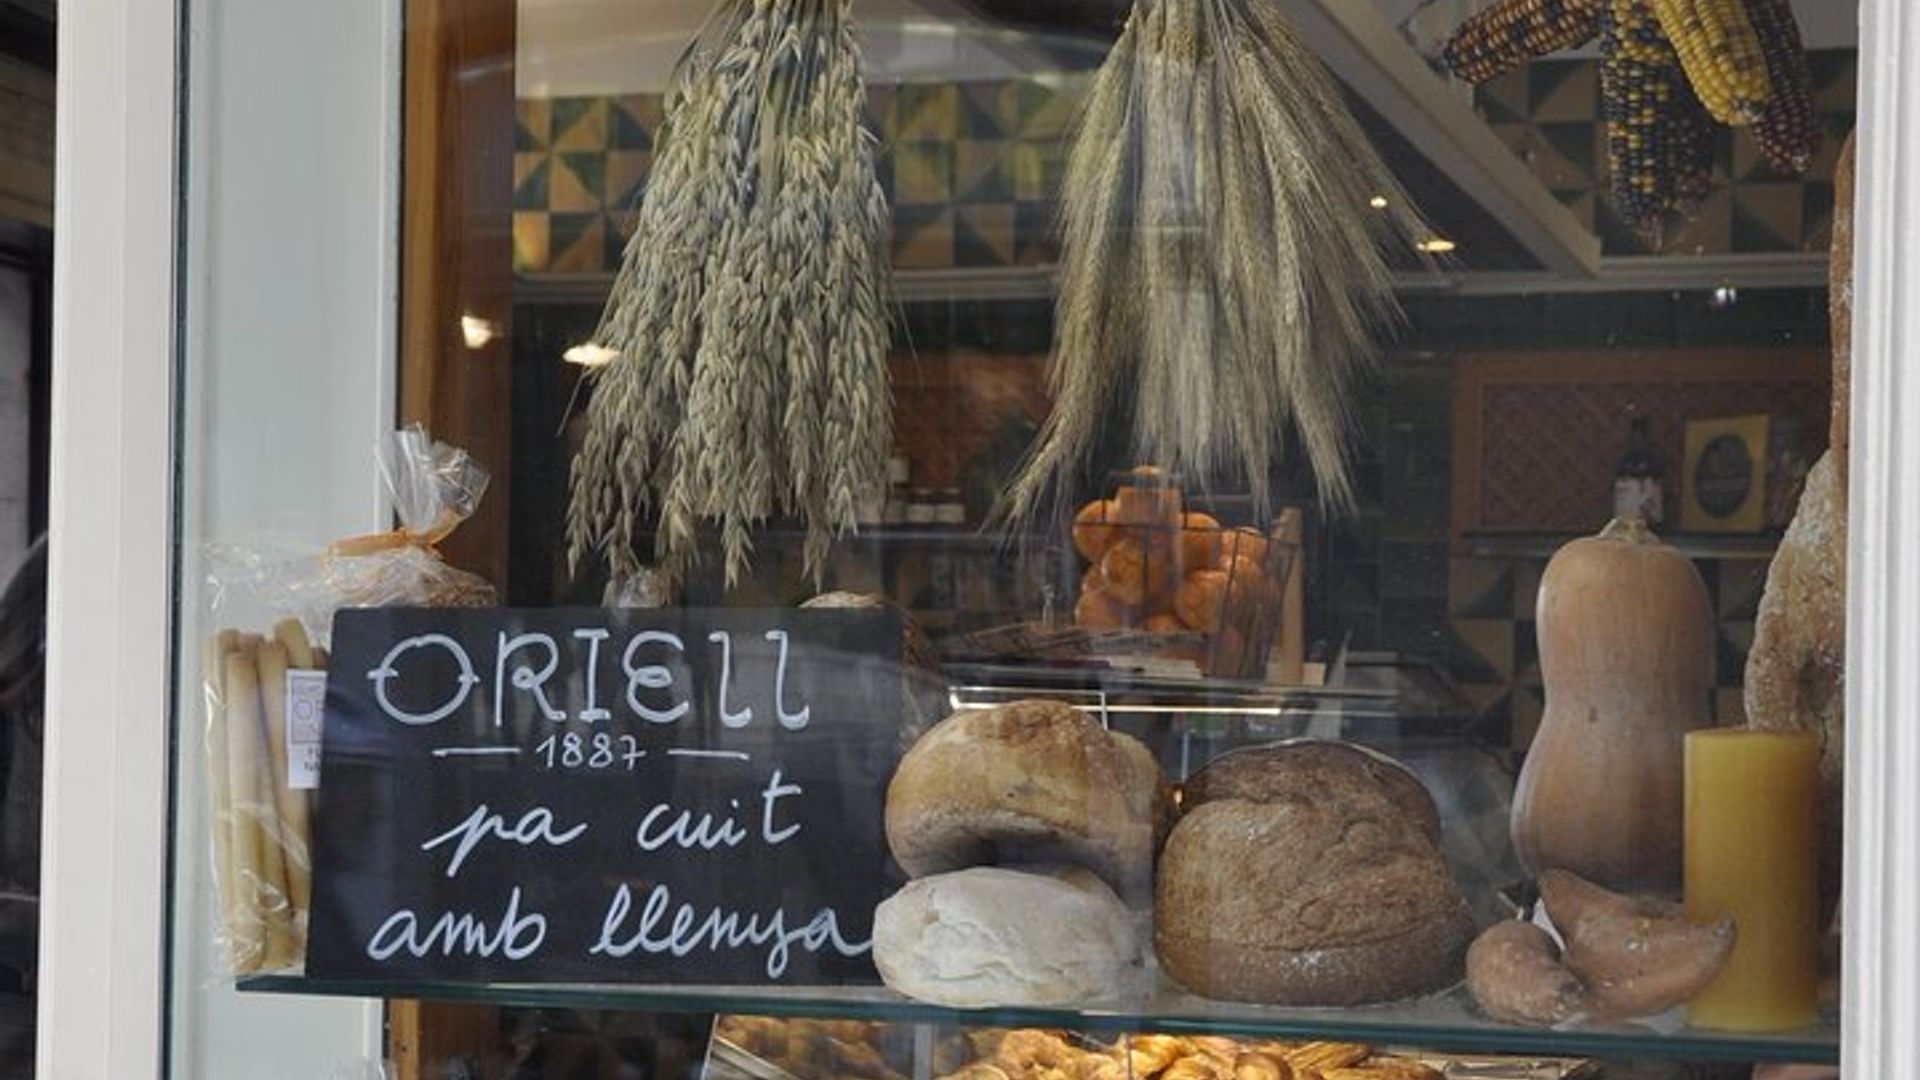 ORIEll
1887
pa cuit
amb llenya